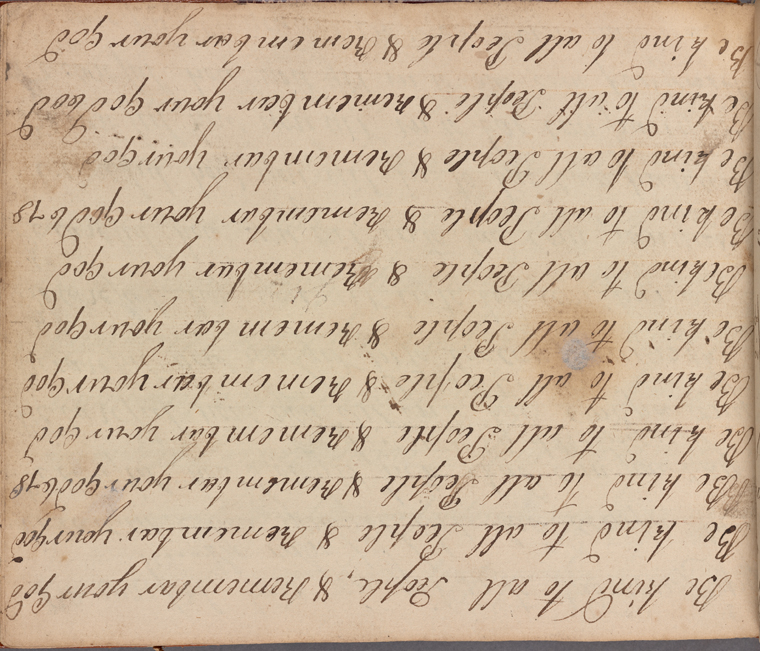 Be kind to all People, & Remembar your God
Be kind to all People & Remembar your God
Be kind to all People & Remembar your God 678
Be kind to all People & Remembar your God
Be kind to all People & Remembar your God
Be kind to all People & Remembar your God
Be kind to all People & Remembar your God
Be kind to all People & Remembar your God 678
Be kind to all People & Remembar your God
Be kind to all People & Remembar your God
Be kind to all People & Remembar your God